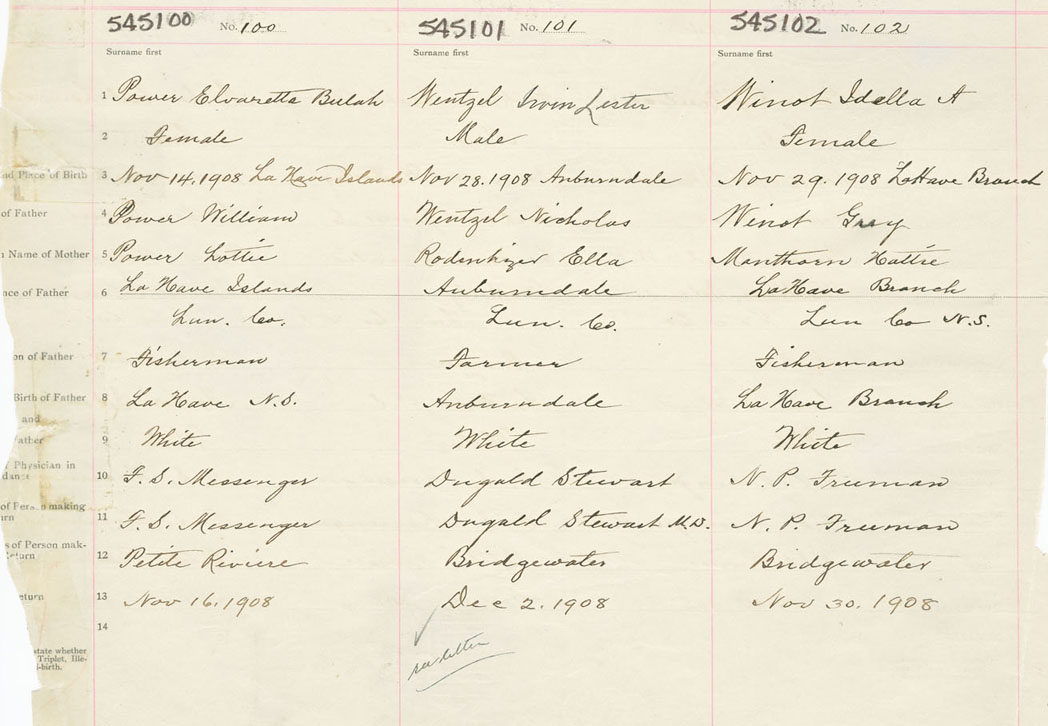 545100 No. 100 545101 No. 101 545102 No. 102
Surname first Surname first Surname first
1 Power Elvaretta Bulah Wentzel Irvin Lester Winot Idella A
2 Female Male Female
nd Place of Birth 3 Nov 14. 1908 La Have Islands Nov 28. 1908 Auburndale Nov 29. 1908 LaHave Branch
of Father 4 Power William Wentzel Nicholas Winot Gray
Name of Mother 5 Power Lottie Rodenhizer Ella Manthorn Hattie
nce of Father 6 La Have Islands Auburndale LaHave Branch
Lun. Co. Lun. Co. Lun Co N.S.
on of Father 7 Fisherman Farmer Fisherman
Birth of Father 8 La Have N.S. Auburndale La Have Branch
and
ather 9 White White White
Physician in
dance 10 F. S. Messenger Dugald Stewart N. P. Freeman
of Person making
urn 11 F. S. Messenger Dugald Stewart M.D. N. P. Freeman
s of Person mak-
Return 12 Petite Riviere Bridgewater Bridgewater
eturn 13 Nov 16. 1908 Dec 2. 1908 Nov 30. 1908
14
state whether
Triplet, Ille-
-birth.
see letter